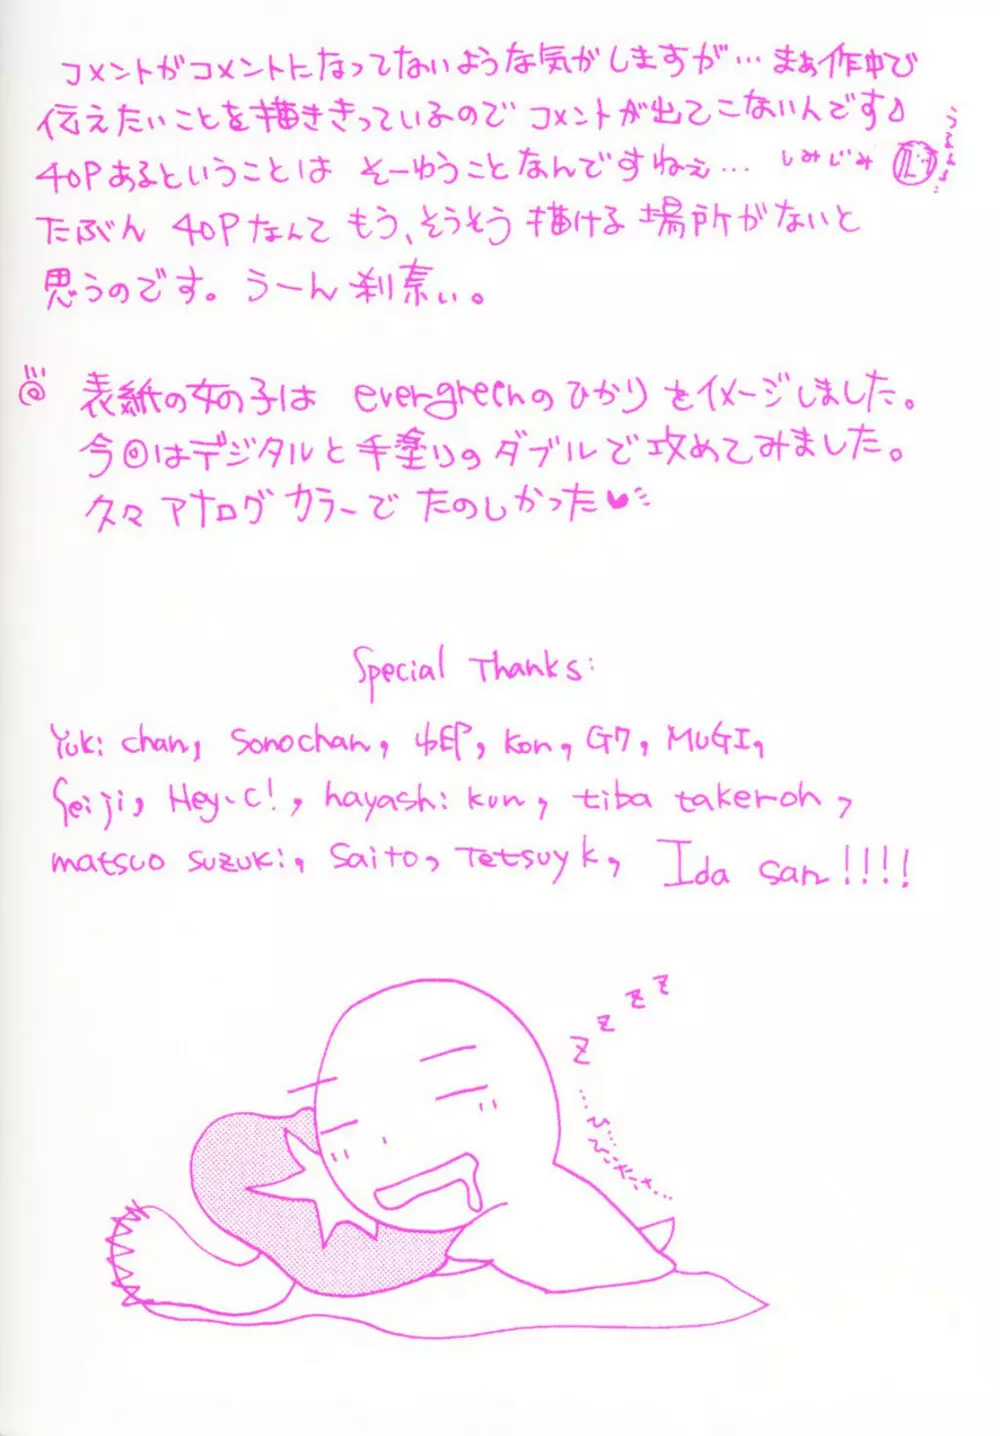 コメントがコメントになってないような気がしますが…まぁ作中で
伝えたいことを描ききっているのでコメントが出てこないんです♪
40Pあるということは そーゆうことなんですねぇ… しみじみ
たぶん 40Pなんて もう、そうそう描ける場所がないと
思うのです。うーん 刹素い。
表紙の女の子は evergreenのひかりをイメージしました。
今回はデジタルと手塗りのダブルで攻めてみました。
久々アナログカラーで たのしかった♥
Special Thanks:
Yuki chan, Sonochan, ゆEP, Kon, G7, MUGI,
Seiji, Hey-C!, hayashi kun, tiba takeroh,
matsuo suzuki, Saito, Tetsuyk, Ida san!!!!
z z z z